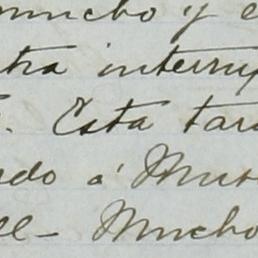 mucho y e
tra interrup
. Esta tar
do á Mur
ll - Mucho